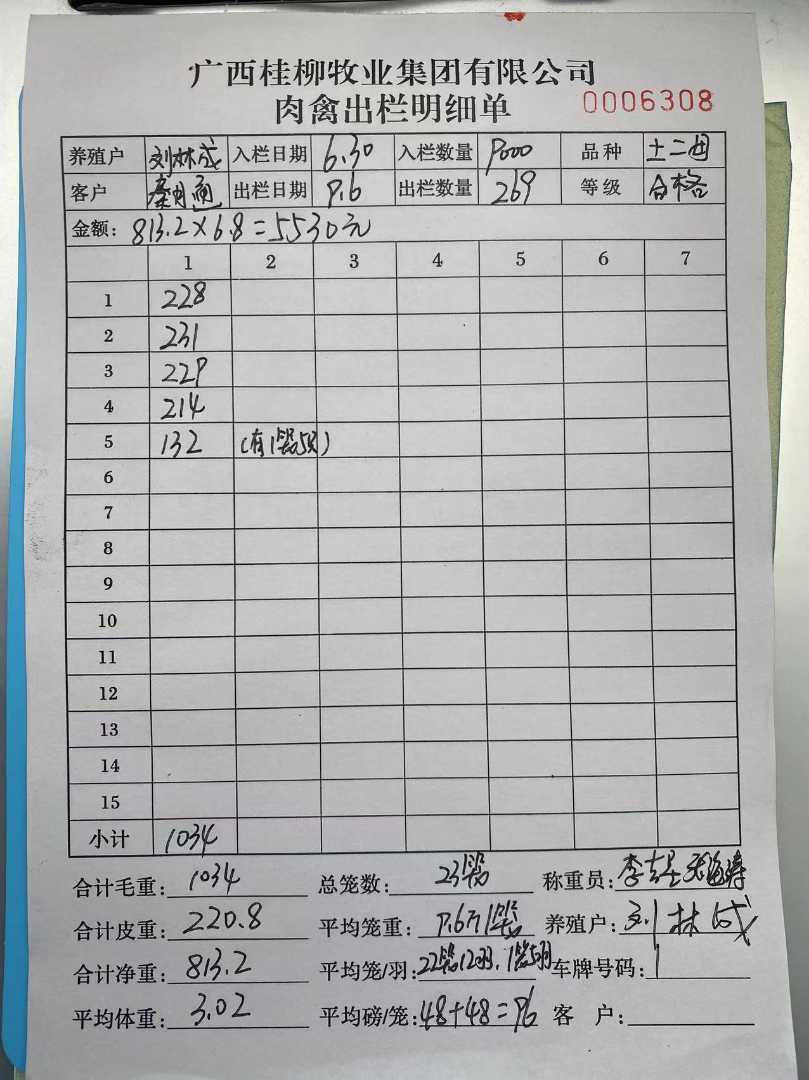 广西桂柳牧业集团有限公司
肉禽出栏明细单 0006308
养殖户 刘林成 入栏日期 6.30 入栏数量 9000 品种 土二
客户 秦 出栏日期 9.6 出栏数量 269 等级 合格
金额: 813.2×6.8=5530元
1 2 3 4 5 6 7
1 228
2 231
3 229
4 214
5 132 (有1袋5只)
6
7
8
9
10
11
12
13
14
15
小计 1034
合计毛重: 1034 总笼数: 23袋 称重员: 李
合计皮重: 220.8 平均笼重: 9.6斤1袋 养殖户: 刘林成
合计净重: 813.2 平均笼/羽: 22袋12羽.1袋5羽 车牌号码:
平均体重: 3.02 平均磅/笼: 48+48=96 客 户: